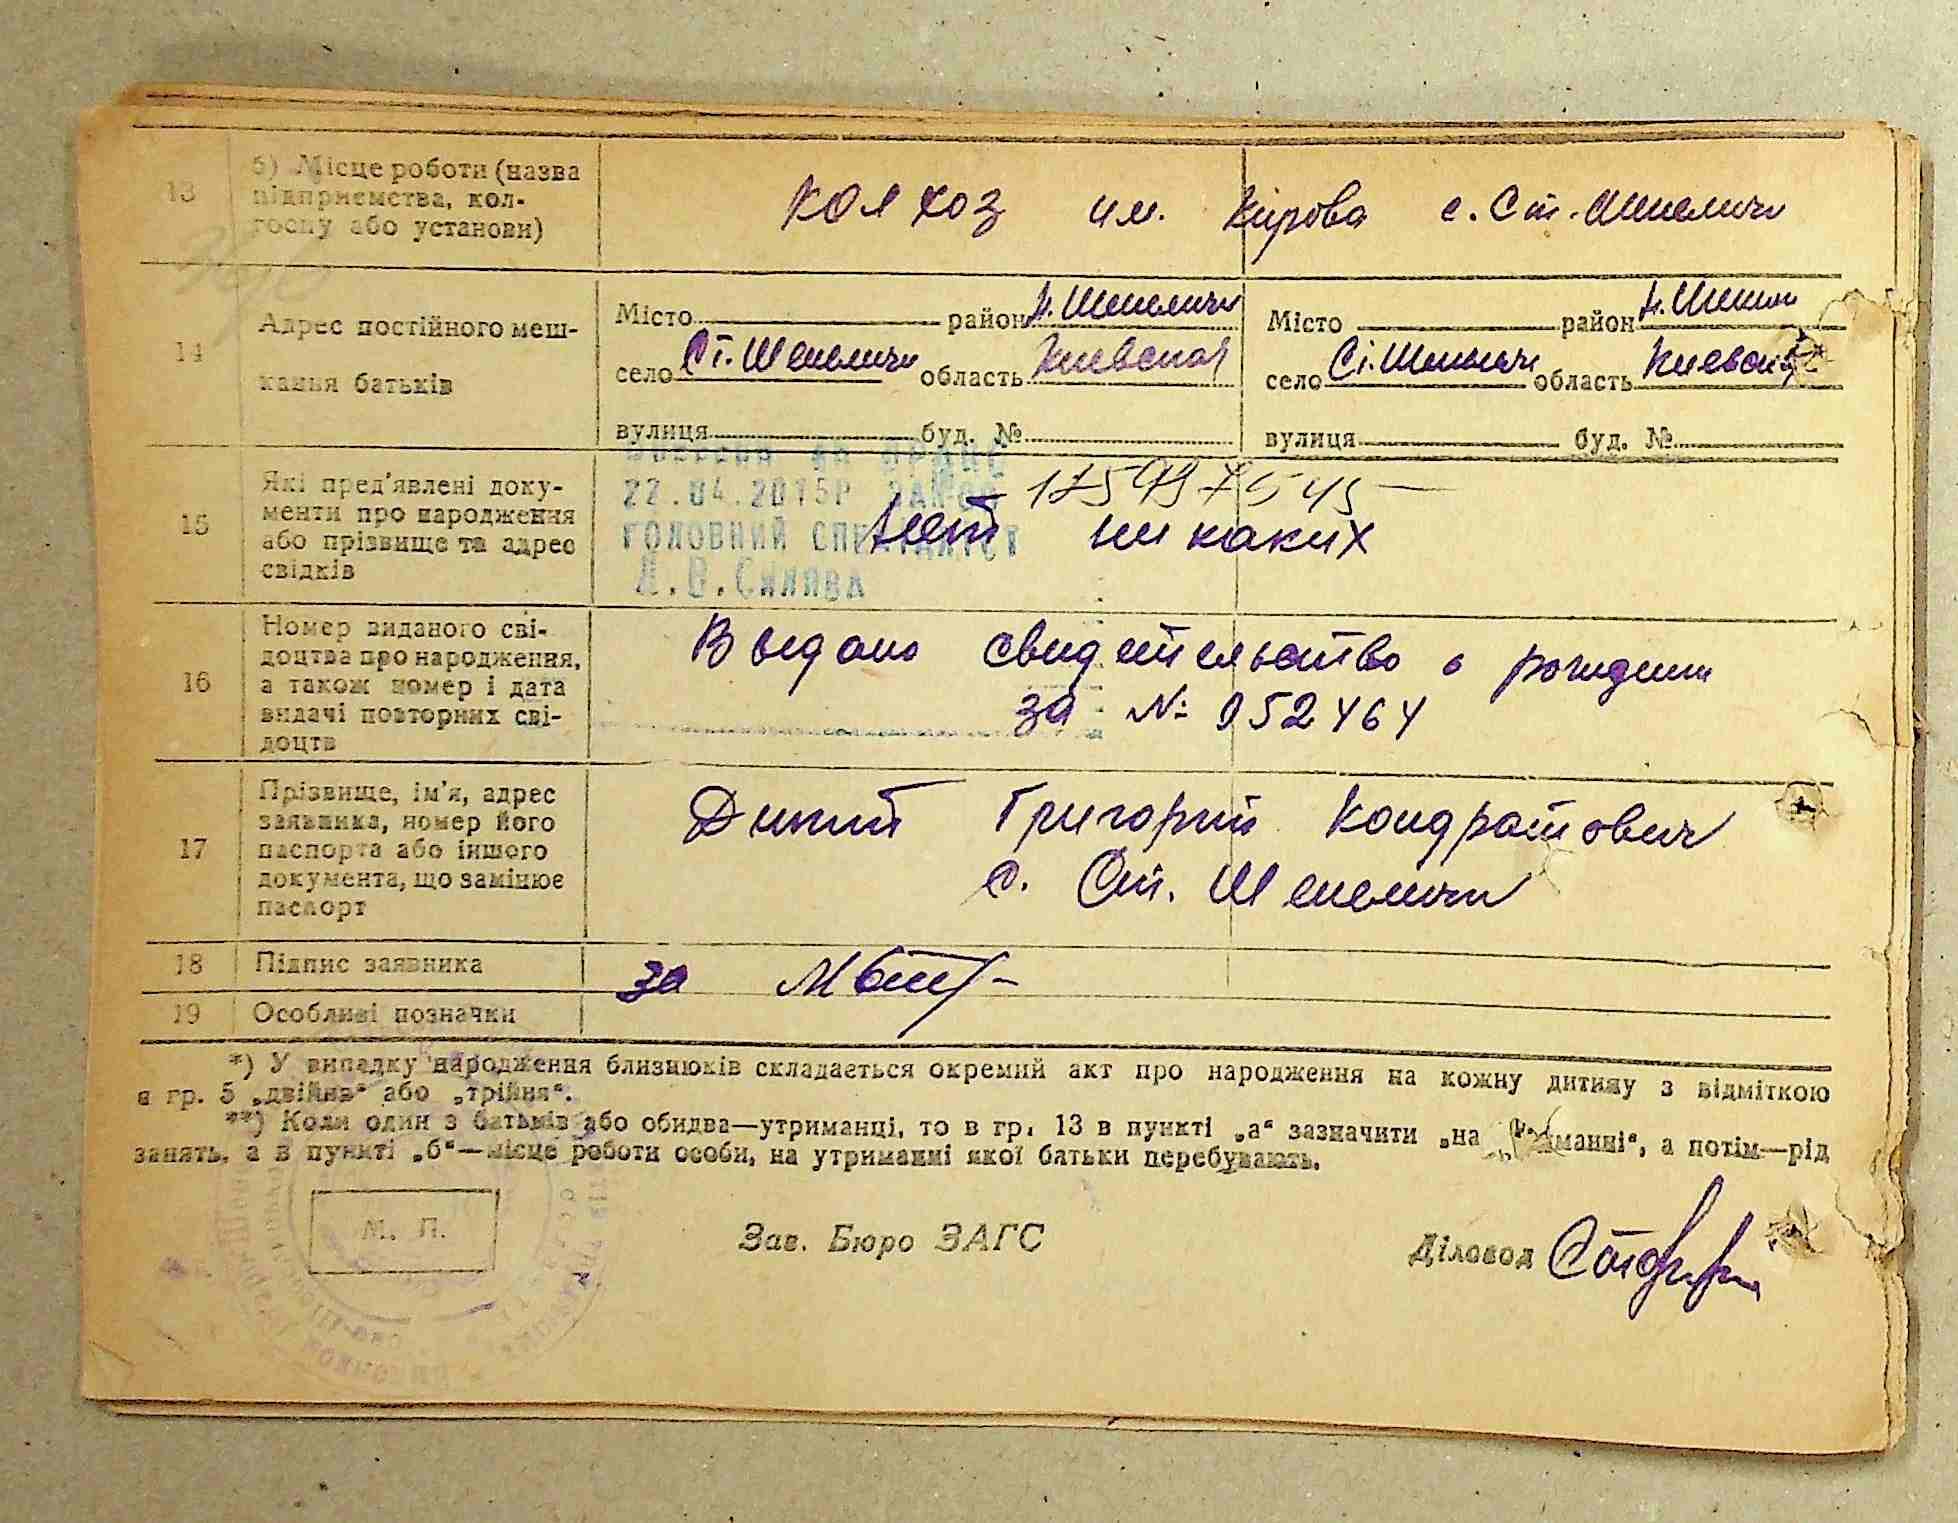 13
б) Місце роботи (назва
підприємства, кол-
госпу або установи)
колхоз им. Кірова с. Ст. Шепеличи
14
Адрес постійного меш-
кання батьків
Місто район Н. Шепеличи
село Ст. Шепеличи область Киевская
вулиця буд. №
Місто район
село Ст. Шепеличи область Киевская
вулиця буд. №
15
Які пред'явлені доку-
менти про народження
або прізвище та адрес
свідків
22.04.2015Р
ГОЛОВНИЙ СПЕЦІАЛІСТ
Нет никаких
16
Номер виданого сві-
доцтва про народження,
а також номер і дата
видачі повторних сві-
доцтв
Выдано свидетельство о рождении
за № 052464
17
Прізвище, ім'я, адрес
заявника, номер його
паспорта або іншого
документа, що замінює
паспорт
Дикий Григорий Кондратович
с. Ст. Шепеличи
18
Підпис заявника
за
19
Особливі позначки
*) У випадку народження близнюків складається окремий акт про народження на кожну дитину з відміткою
в гр. 5 „двійня“ або „трійня“.
**) Коли один з батьків або обидва—утриманці, то в гр. 13 в пункті „а“ зазначити „на утриманні“, а потім—рід
занять, а в пункті „б“—місце роботи особи, на утриманні якої батьки перебувають.
М. П.
Зав. Бюро ЗАГС
Діловод